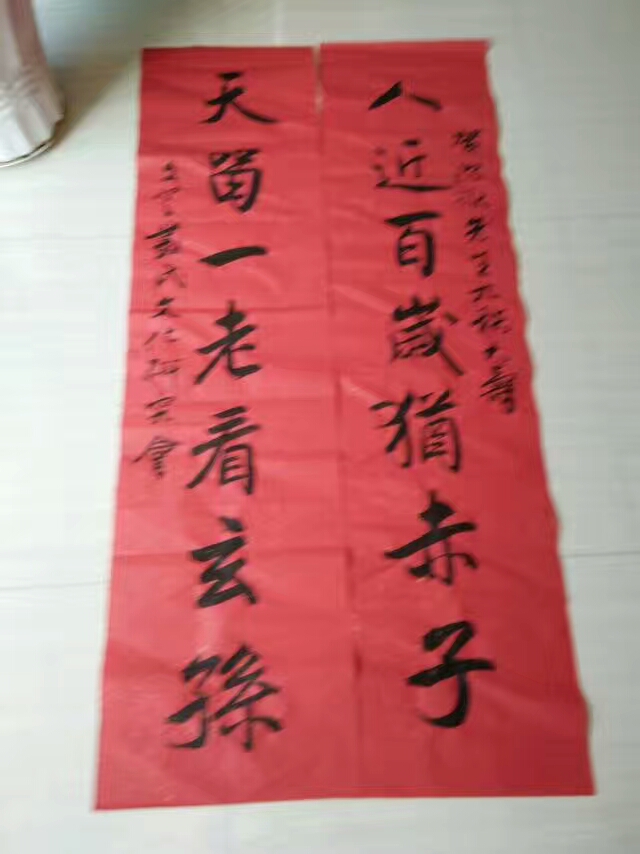 賀先生九秩大壽
人近百歲猶赤子
天留一老看玄孫
氏文化研究會